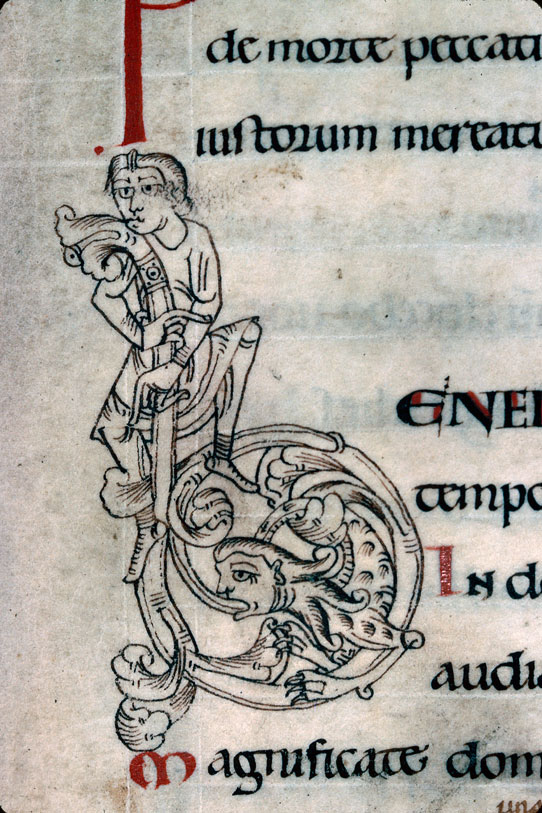 de morte peccati
iustorum mereatu
bENE
tempo
In de
audia
Magnificate dom